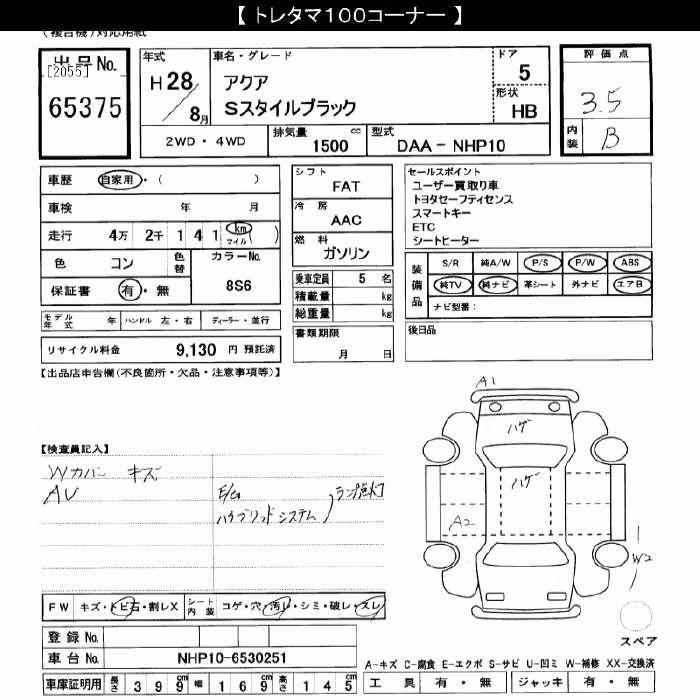 【 トレタマ100コーナー 】
(複合機)対応用紙
出品No.
[2055]
65375
年式
H28
8月
車名・グレード
アクア
Sスタイルブラック
ドア
5
形状
HB
評価点
3.5
内装
B
2WD・4WD
排気量
1500 cc
型式
DAA-NHP10
車歴 自家用・( )
車検 年 月
走行 4万 2千 1 4 1 km マイル ( )
色 コン 色替
カラーNo.
8S6
保証書 有・無
モデル年式 年 ハンドル 左・右 ディーラー・並行
リサイクル料金 9,130 円 預託済
シフト
FAT
冷房
AAC
燃料
ガソリン
乗車定員 5 名
積載量 kg
総重量 kg
書類期限
月 日
セールスポイント
ユーザー買取り車
トヨタセーフティセンス
スマートキー
ETC
シートヒーター
装備品
S/R 純A/W P/S P/W ABS
純TV 純ナビ 革シート 外ナビ エアB
ナビ型番:
後日品
【出品店申告欄(不良箇所・欠品・注意事項等)】
【検査員記入】
Wカバー キズ
AU
E/G
ハイブリッドシステム
ランプ点灯
A1
ハゲ
ハゲ
A2
W2
スペア
FW キズ・トビ石・割レX
シート内装 コゲ・穴・汚レ・シミ・破レ・スレ
登録No.
車台No. NHP10-6530251
車庫証明用 長さ 3 9 9 cm 幅 1 6 9 cm 高さ 1 4 5 cm
A-キズ C-腐食 E-エクボ S-サビ U-凹ミ W-補修 XX-交換済
工具 有・無 ジャッキ 有・無